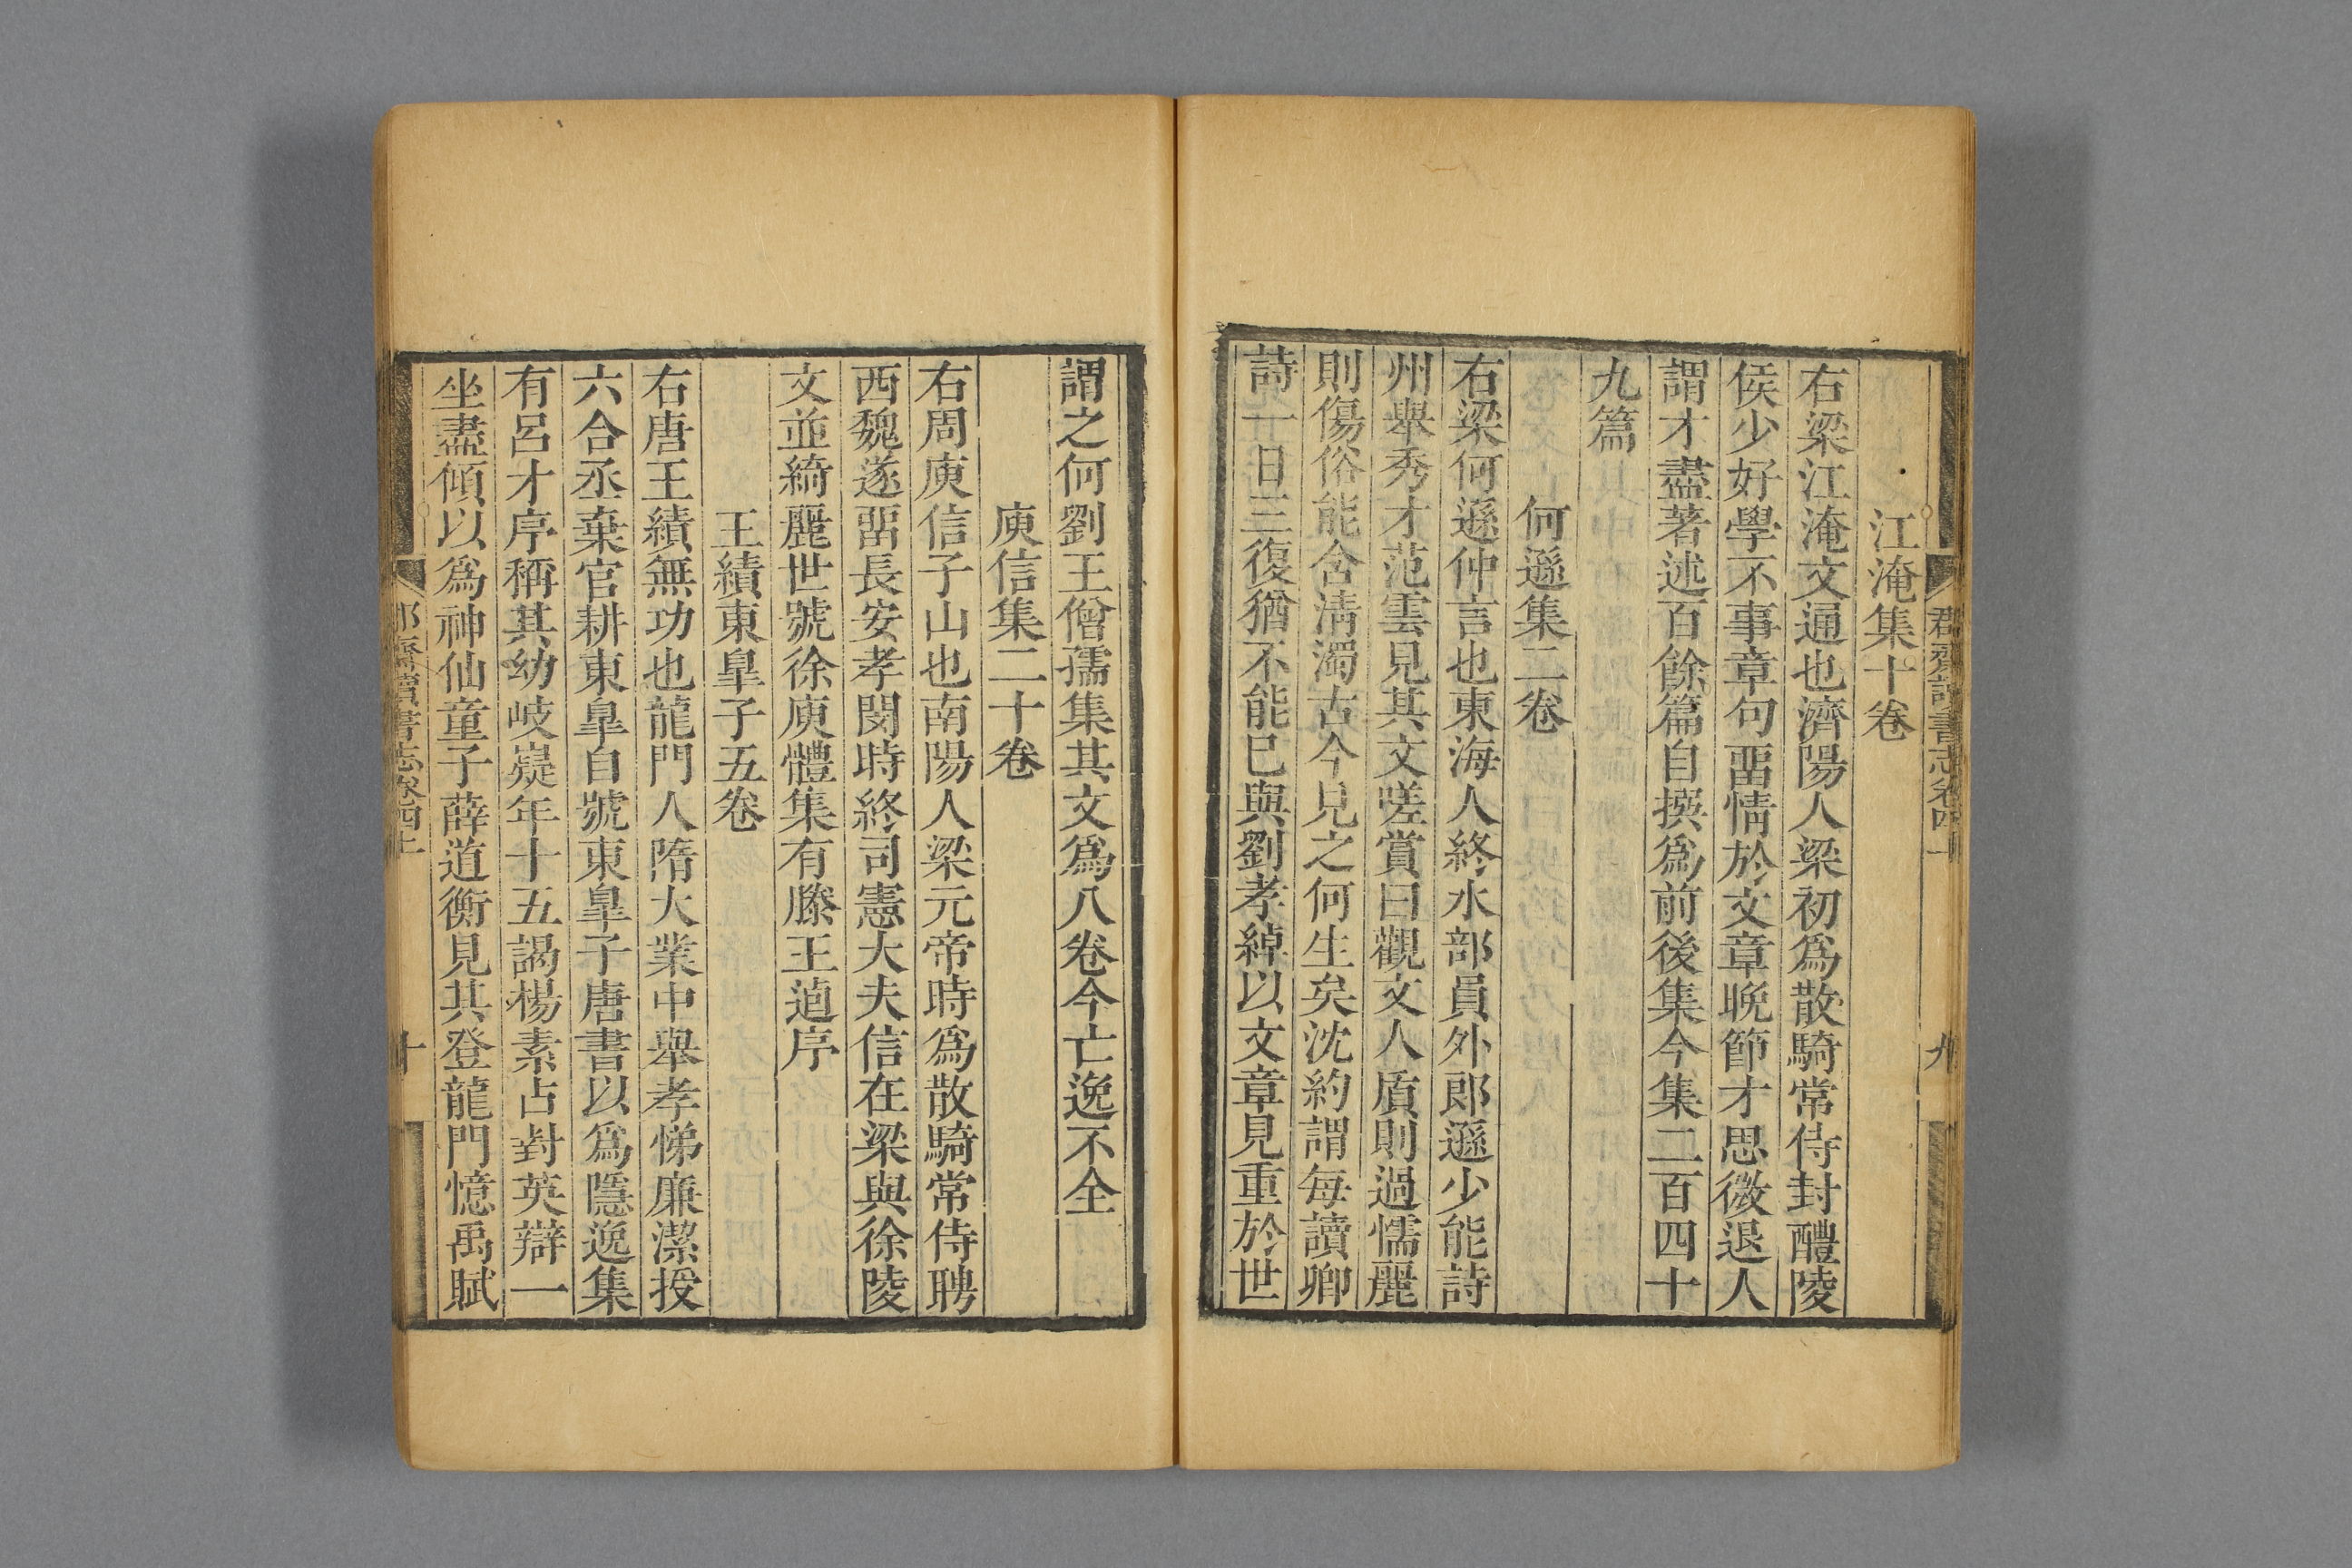 江淹集十卷
右梁江淹文通也濟陽人梁初爲散騎常侍封醴陵
侯少好學不事章句畱情於文章晚節才思微退人
謂才盡著述百餘篇自撰爲前後集今集二百四十
九篇
何遜集二卷
右梁何遜仲言也東海人終水部員外郎遜少能詩
州舉秀才范雲見其文嗟賞曰觀文人質則過懦麗
則傷俗能含淸濁古今見之何生矣沈約謂每讀卿
詩一日三復猶不能已與劉孝綽以文章見重於世
謂之何劉王僧孺集其文爲八卷今亡逸不全
庾信集二十卷
右周庾信子山也南陽人梁元帝時爲散騎常侍聘
西魏遂畱長安孝閔時終司憲大夫信在梁與徐陵
文並綺麗世號徐庾體集有滕王逌序
王績東皐子五卷
右唐王績無功也龍門人隋大業中舉孝悌廉潔授
六合丞棄官耕東皐自號東皐子唐書以爲隱逸集
有呂才序稱其幼岐嶷年十五謁楊素占對英辯一
坐盡傾以爲神仙童子薛道衡見其登龍門憶禹賦
郡齋讀書志卷四上
十